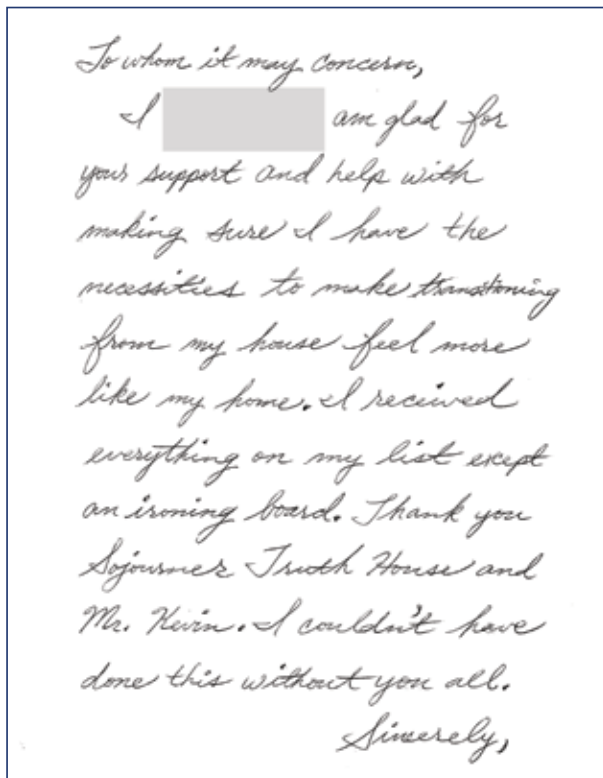 To whom it may concern,
I am glad for
your support and help with
making sure I have the
necessities to make transitioning
from my house feel more
like my home. I received
everything on my list except
an ironing board. Thank you
Sojourner Truth House and
Mr. Kevin. I couldn't have
done this without you all.
Sincerely,